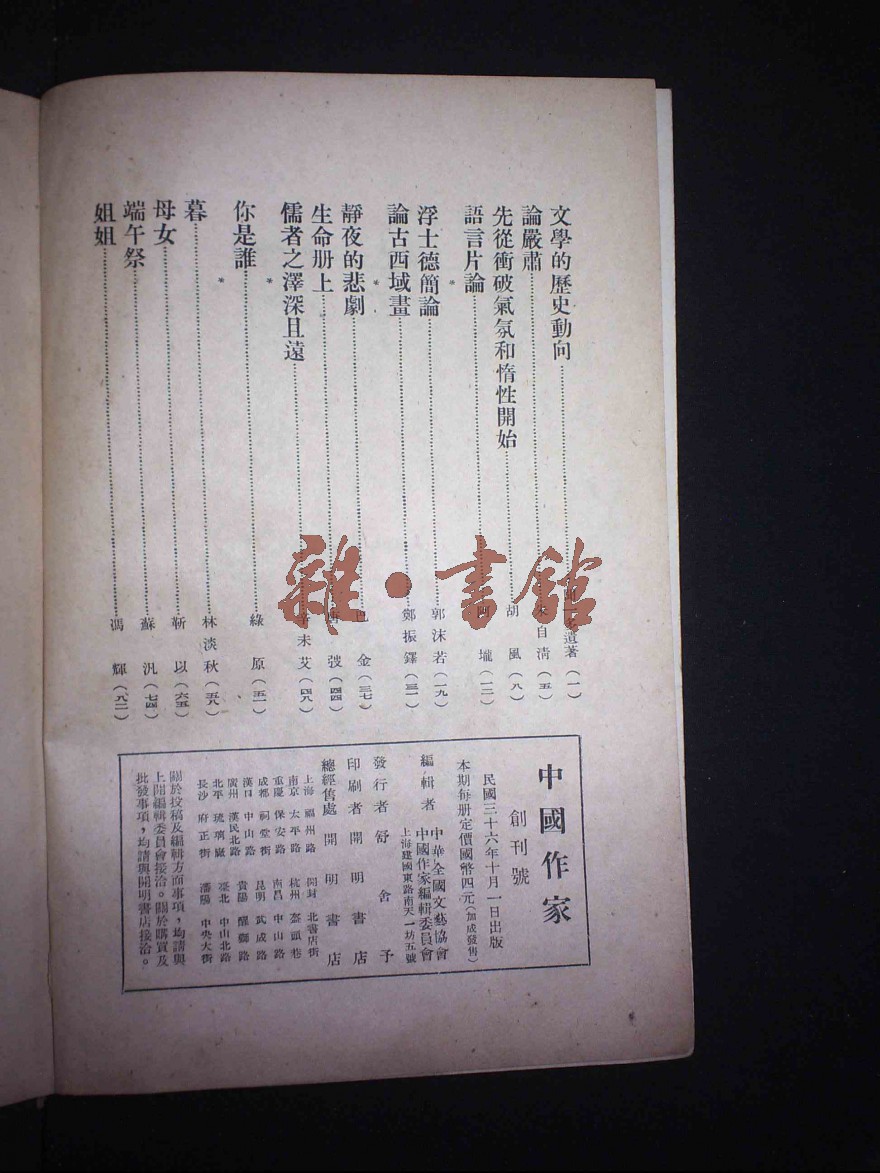 文學的歷史動向……遺著(一)
論嚴肅……朱自淸(五)
先從衝破氣氛和惰性開始……胡風(八)
語言片論……阿壠(一二)
*
浮士德簡論……郭沫若(一九)
論古西域畫……鄭振鐸(三一)
*
靜夜的悲劇……巴金(三七)
生命册上……唐弢(四四)
儒者之澤深且遠……辛未艾(四八)
*
你是誰……綠原(五一)
*
暮……林淡秋(五八)
母女……靳以(六五)
端午祭……蘇汎(七四)
姐姐……馮輝(八二)
雜·書館
中國作家
創刊號
民國三十六年十月一日出版
本期每册定價國幣四元(加成發售)
編輯者 中華全國文藝協會
中國作家編輯委員會
上海建國東路南天一坊五號
發行者 舒舍予
印刷者 開明書店
總經售處 開明書店
上海 福州路 開封 北書店街
南京 太平路 杭州
重慶 保安路 南昌 中山路
成都 祠堂街 昆明 武成路
漢口 中山路 貴陽 醒獅路
廣州 漢民北路 臺北 中山北路
北平 琉璃廠 瀋陽 中央大街
長沙 府正街
關於投稿及編輯方面事項,均請與
上開編輯委員會接洽。關於購買及
批發事項,均請與開明書店接洽。